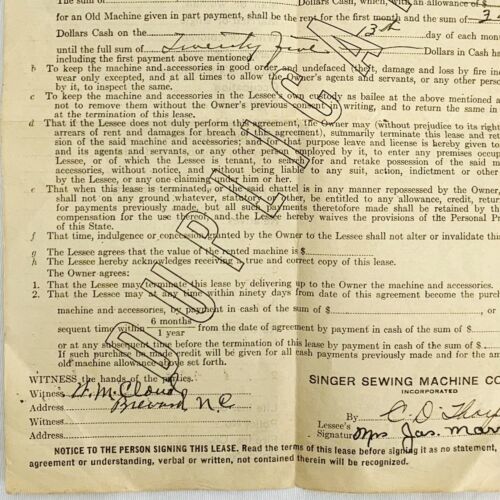 sum of Dollars Cash, which, with an allowance of $
for an Old Machine given in part payment, shall be the rent for the first month and the sum of 3
Dollars Cash on the 13th day of each month
until the full sum of Twenty Five Dollars in Cash
including the first payment above mentioned
b To keep the machine and accessories in good order and undefaced (theft, damage and loss by fire in
wear only excepted, and at all times to allow the Owner's agents and servants, or any other person
by it, to inspect the same.
c To keep the machine and accessories in the Lessee's own custody as bailee at the above mentioned a
not to remove them without the Owner's previous consent in writing, and to return the same in
at the termination of this lease.
d That if the Lessee does not duly perform this agreement, the Owner may (without prejudice to its rights
arrears of rent and damages for breach of this agreement), summarily terminate this lease and ret
sion of the said machine and accessories; and for that purpose leave and license is hereby given to
and its agents and servants, or any other person employed by it, to enter any premises occup
Lessee, or of which the Lessee is tenant, to search for and retake possession of the said m
accessories, without notice, and without being liable to any suit, action, indictment or other
by the Lessee, or any one claiming under him or her.
e That when this lease is terminated, or the said chattel is in any manner repossessed by the Owner,
shall not on any ground whatever, statutory or other, be entitled to any allowance, credit, return
for payments previously made, but all such payments theretofore made shall be retained by th
compensation for the use thereof, and the Lessee hereby waives the provisions of the Personal Pr
of this State.
f That time, indulgence or concession granted by the Owner to the Lessee shall not alter or invalidate this
g The Lessee agrees that the value of the rented machine is $
h The Lessee hereby acknowledges receiving a true and correct copy of this lease.
The Owner agrees:
1. That the Lessee may terminate this lease by delivering up to the Owner the machine and accessories.
2. That the Lessee may at any time within ninety days from date of this agreement become the purch
machine and accessories, by payment in cash of the sum of $ , or
sequent time within 6 months 1 year from the date of agreement by payment in cash of the sum of $
or at any subsequent time before the termination of this lease by payment in cash of the sum of $
If such purchase be made credit will be given for all cash payments previously made and for the amoun
old machine allowance above set forth.
DUPLICATE
WITNESS the hands of the parties.
SINGER SEWING MACHINE CO
INCORPORATED
Witness W. M. Cloud
Address Brevard N.C.
By C. D.
Witness
Address
Lessee's
Signature Mrs Jas.
NOTICE TO THE PERSON SIGNING THIS LEASE. Read the terms of this lease before signing it as no statement,
agreement or understanding, verbal or written, not contained therein will be recognized.